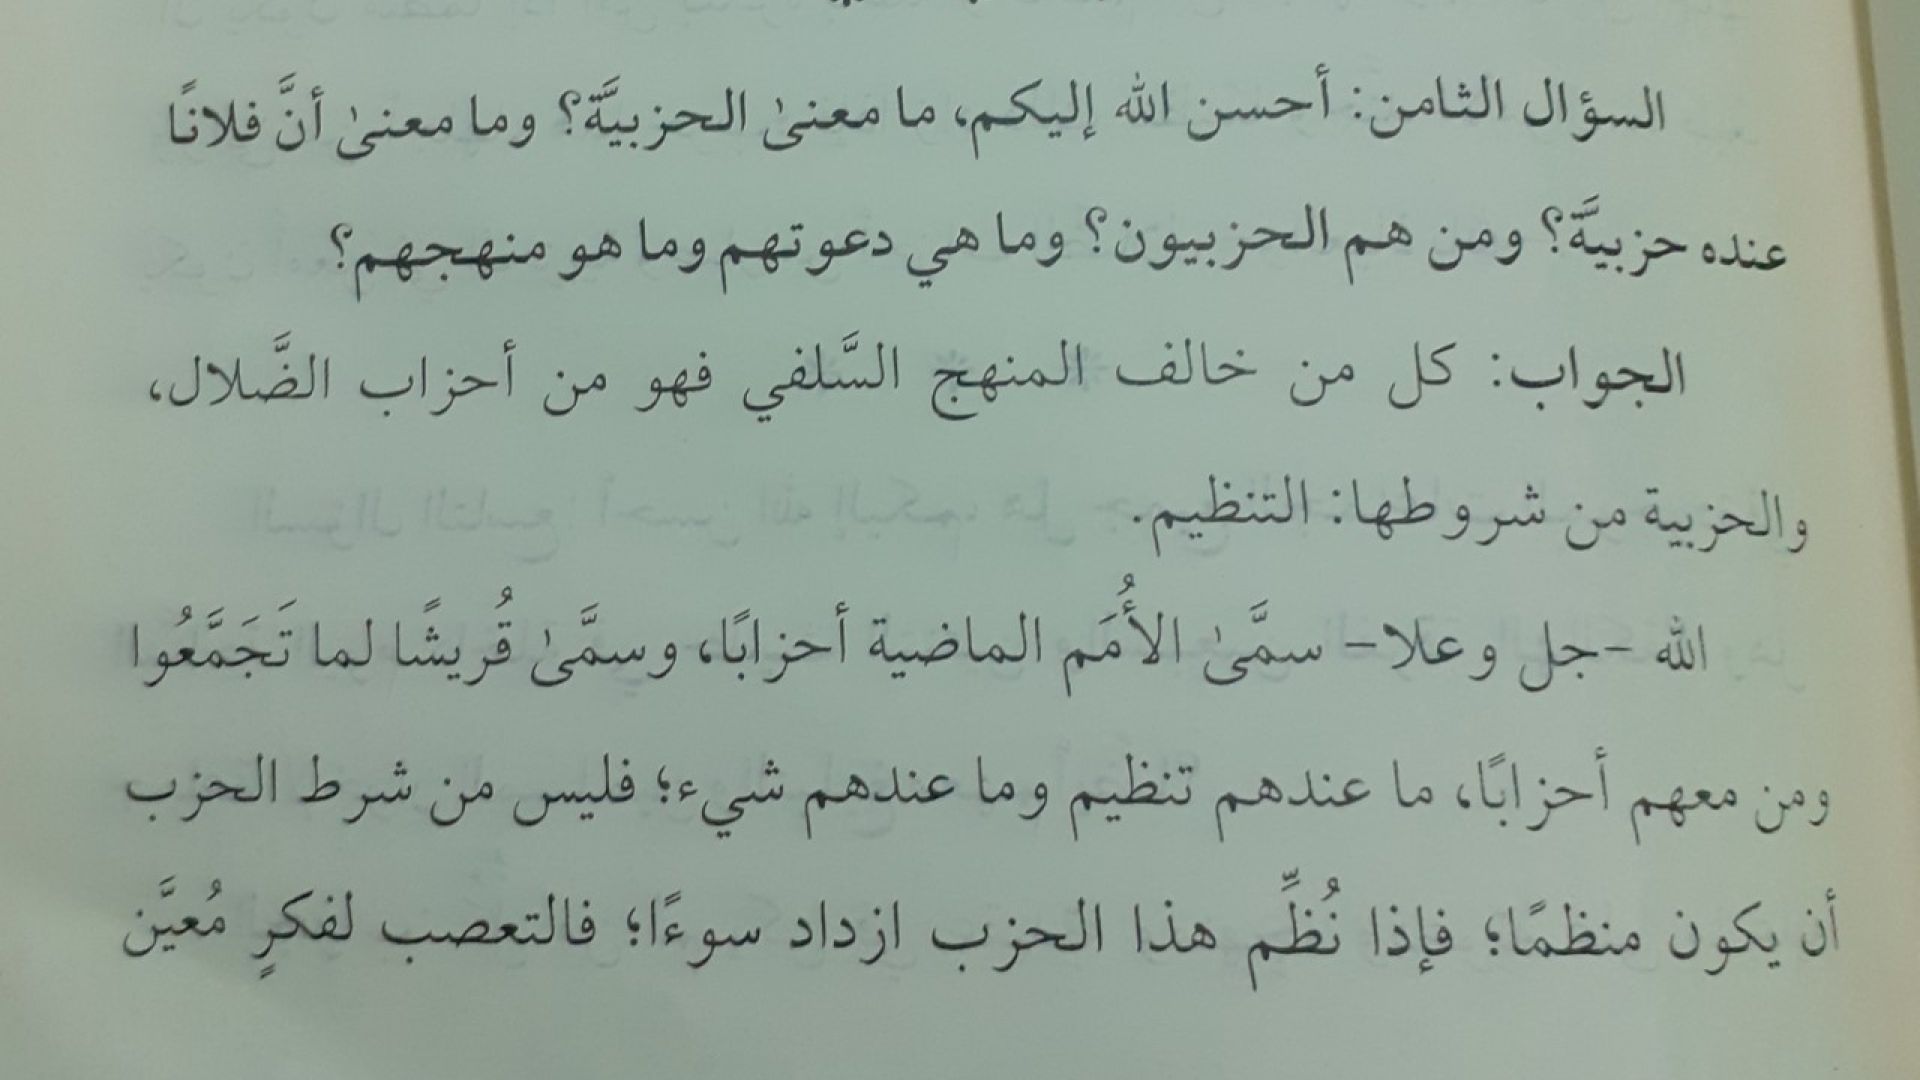 السؤال الثامن: أحسن الله إليكم، ما معنىٰ الحزبيَّة؟ وما معنىٰ أنَّ فلانًا
عنده حزبيَّة؟ ومن هم الحزبيون؟ وما هي دعوتهم وما هو منهجهم؟
الجواب: كل من خالف المنهج السَّلفي فهو من أحزاب الضَّلال،
والحزبية من شروطها: التنظيم.
الله -جل وعلا- سمَّىٰ الأُمَم الماضية أحزابًا، وسمَّىٰ قُريشًا لما تَجَمَّعُوا
ومن معهم أحزابًا، ما عندهم تنظيم وما عندهم شيء؛ فليس من شرط الحزب
أن يكون منظمًا؛ فإذا نُظِّم هذا الحزب ازداد سوءًا؛ فالتعصب لفكرٍ مُعيَّن